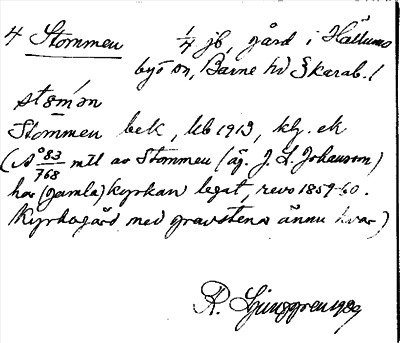 4 Stommen 1/4 jb, gård i Hällums
by o on, Barne hd Skarab. l
stŏm'ən
Stommen bek, lcb 1913, klg. ek
(Aº 83/768 mtl av Stommen (äg. J. L. Johansson)
har (gamla) kyrkan legat, revs 1859-60.
Kyrkogård med gravstenar ännu kvar)
R. Ljunggren 1929